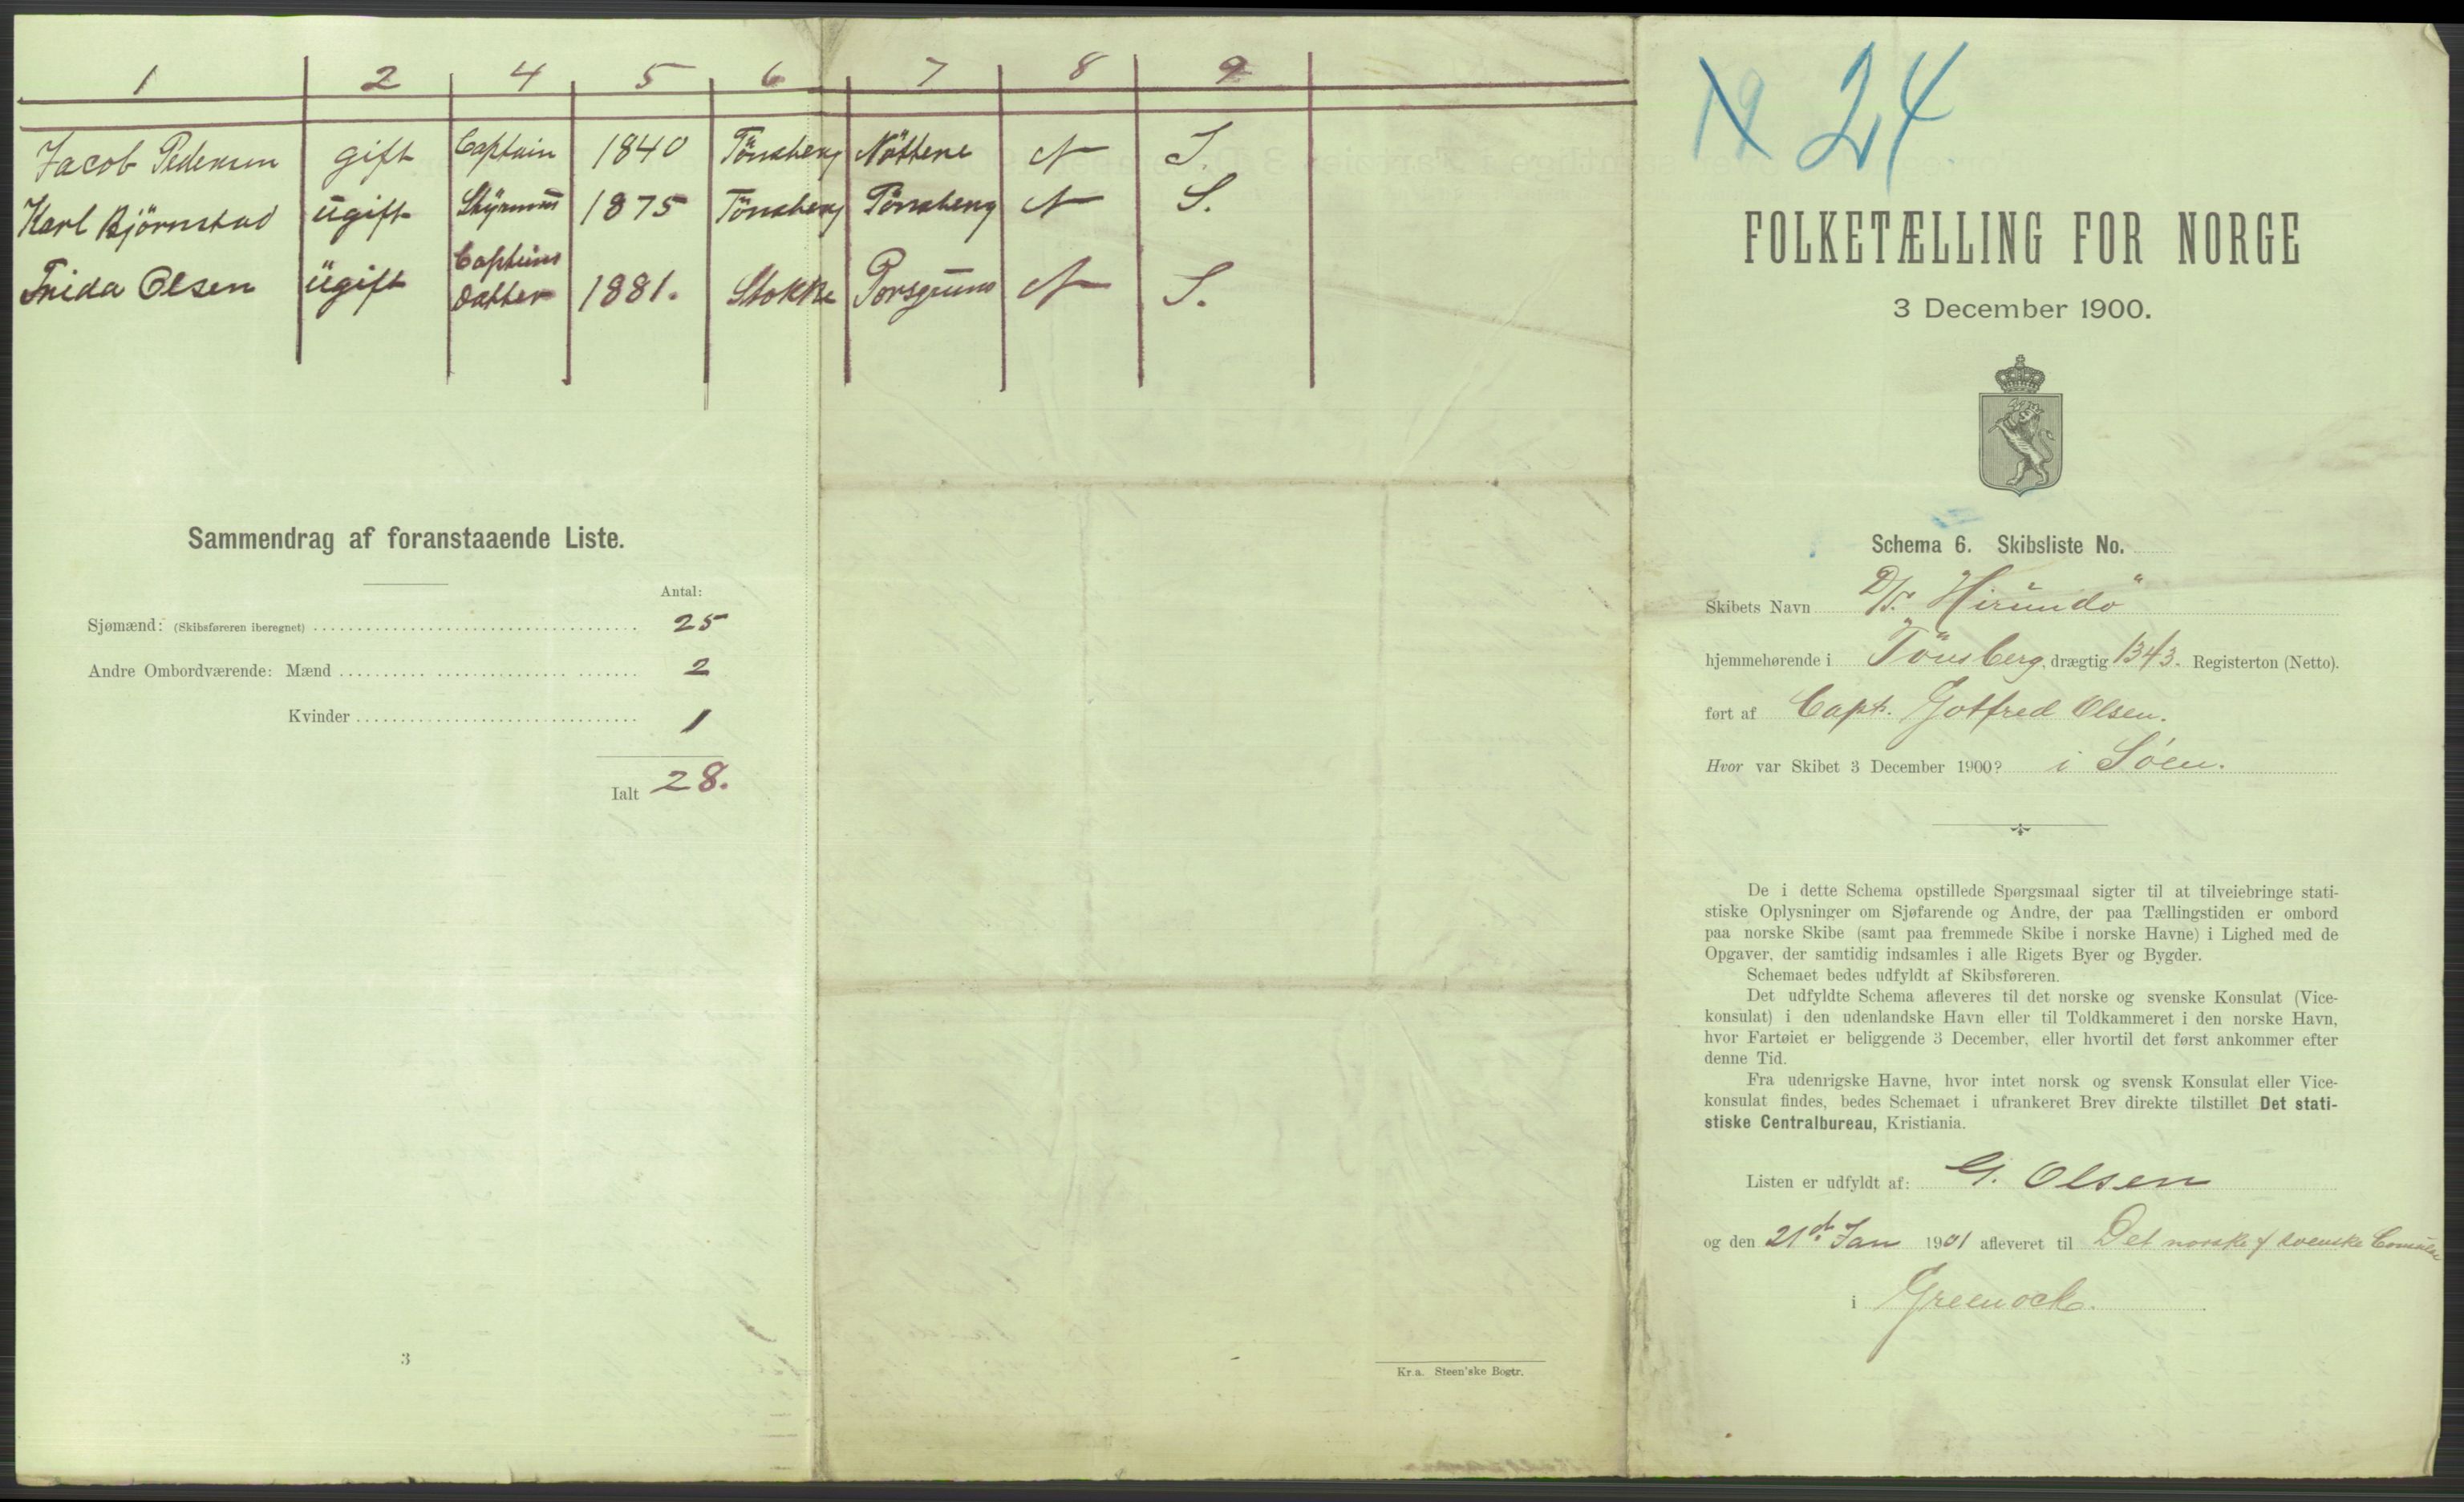 1 2 4 5 6 7 8 9
Jacob Pedersen gift Captain 1840 Tönsberg Nötterö N S.
Karl Björnstad ugift Styrmann 1875 Tönsberg Tönsberg N S.
Frida Olsen ugift Capteins datter 1881. Stokke Porsgrunn N S.
Sammendrag af foranstaaende Liste.
Antal:
Sjømænd: (Skibsføreren iberegnet) 25
Andre Ombordværende: Mænd 2
Kvinder 1
Ialt 28.
3
Kr.a. Steen'ske Bogtr.
24
FOLKETÆLLING FOR NORGE
3 December 1900.
Schema 6. Skibsliste No.
Skibets Navn D/S. "Hirundo"
hjemmehørende i Tönsberg, drægtig 1343. Registerton (Netto).
ført af Capt. Gotfred Olsen.
Hvor var Skibet 3 December 1900? i Söen.
De i dette Schema opstillede Spørgsmaal sigter til at tilveiebringe stati-
stiske Oplysninger om Sjøfarende og Andre, der paa Tællingstiden er ombord
paa norske Skibe (samt paa fremmede Skibe i norske Havne) i Lighed med de
Opgaver, der samtidig indsamles i alle Rigets Byer og Bygder.
Schemaet bedes udfyldt af Skibsføreren.
Det udfyldte Schema afleveres til det norske og svenske Konsulat (Vice-
konsulat) i den udenlandske Havn eller til Toldkammeret i den norske Havn,
hvor Fartøiet er beliggende 3 December, eller hvortil det først ankommer efter
denne Tid.
Fra udenrigske Havne, hvor intet norsk og svensk Konsulat eller Vice-
konsulat findes, bedes Schemaet i ufrankeret Brev direkte tilstillet Det stati-
stiske Centralbureau, Kristiania.
Listen er udfyldt af: G. Olsen
og den 21de Jan 1901 afleveret til Det norske & svenske
i Greenock.